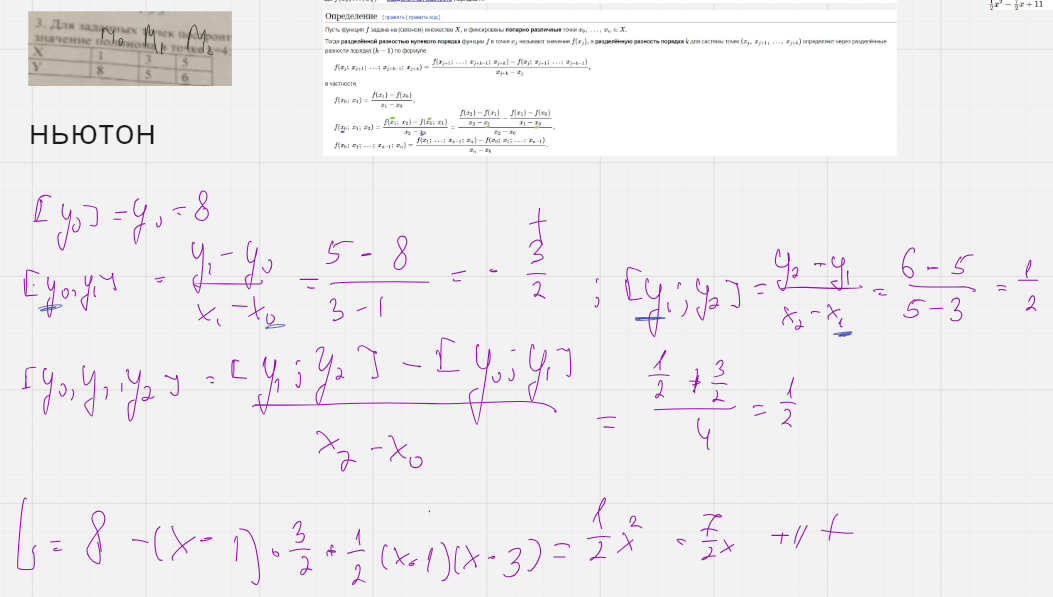 ½x² − ½x + 11
3. Для заданных точек
значение полинома
x₀ y₁ x₂
X 1 3 5
Y 8 5 6
НЬЮТОН
Определение [ править | править код ]
Пусть функция f задана на (связном) множестве X, и фиксированы попарно различные точки x₀, …, xₙ ∈ X.
Тогда разделённой разностью нулевого порядка функции f в точке xⱼ называют значение f(xⱼ), а разделённую разность порядка k для системы точек (xⱼ, xⱼ₊₁, …, xⱼ₊ₖ) определяют через разделённые
разности порядка (k − 1) по формуле
f(xⱼ; xⱼ₊₁; …; xⱼ₊ₖ₋₁; xⱼ₊ₖ) = (f(xⱼ₊₁; …; xⱼ₊ₖ₋₁; xⱼ₊ₖ) − f(xⱼ; xⱼ₊₁; …; xⱼ₊ₖ₋₁)) / (xⱼ₊ₖ − xⱼ),
в частности,
f(x₀; x₁) = (f(x₁) − f(x₀)) / (x₁ − x₀),
f(x₀; x₁; x₂) = (f(x₁; x₂) − f(x₀; x₁)) / (x₂ − x₀) = ((f(x₂) − f(x₁)) / (x₂ − x₁) − (f(x₁) − f(x₀)) / (x₁ − x₀)) / (x₂ − x₀),
f(x₀; x₁; …; xₙ₋₁; xₙ) = (f(x₁; …; xₙ₋₁; xₙ) − f(x₀; x₁; …; xₙ₋₁)) / (xₙ − x₀).
[y₀] = y₀ = 8
[y₀, y₁] = (y₁ − y₀) / (x₁ − x₀) = (5 − 8) / (3 − 1) = − 3/2 ; [y₁; y₂] = (y₂ − y₁) / (x₂ − x₁) = (6 − 5) / (5 − 3) = 1/2
[y₀, y₁, y₂] = ([y₁; y₂] − [y₀; y₁]) / (x₂ − x₀) = (1/2 + 3/2) / 4 = 1/2
= 8 − (x − 1) · 3/2 + 1/2 (x − 1)(x − 3) = 1/2 x² − 7/2 x + 11